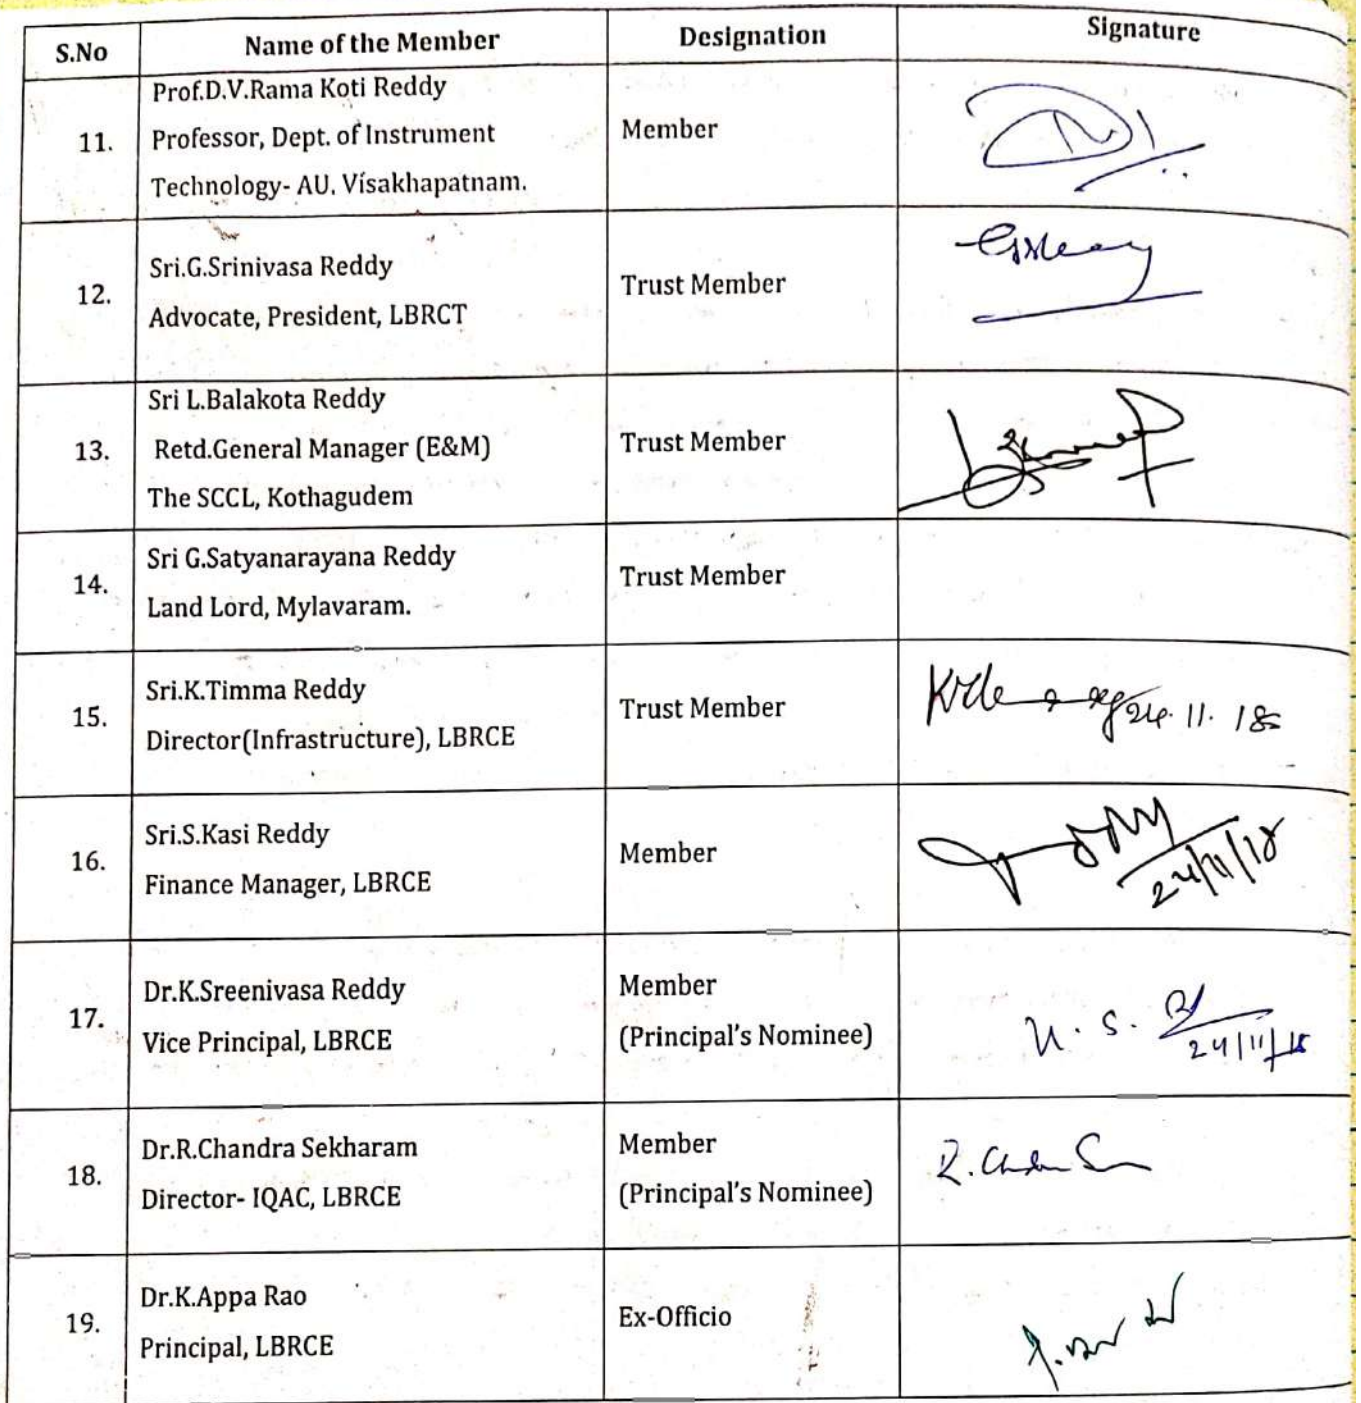 S.No Name of the Member Designation Signature
11. Prof.D.V.Rama Koti Reddy
Professor, Dept. of Instrument
Technology- AU, Visakhapatnam.
Member
12. Sri.G.Srinivasa Reddy
Advocate, President, LBRCT
Trust Member
13. Sri L.Balakota Reddy
Retd.General Manager (E&M)
The SCCL, Kothagudem
Trust Member
14. Sri G.Satyanarayana Reddy
Land Lord, Mylavaram.
Trust Member
15. Sri.K.Timma Reddy
Director(Infrastructure), LBRCE
Trust Member
24.11.18
16. Sri.S.Kasi Reddy
Finance Manager, LBRCE
Member
24/11/18
17. Dr.K.Sreenivasa Reddy
Vice Principal, LBRCE
Member
(Principal's Nominee)
24/11/18
18. Dr.R.Chandra Sekharam
Director- IQAC, LBRCE
Member
(Principal's Nominee)
19. Dr.K.Appa Rao
Principal, LBRCE
Ex-Officio